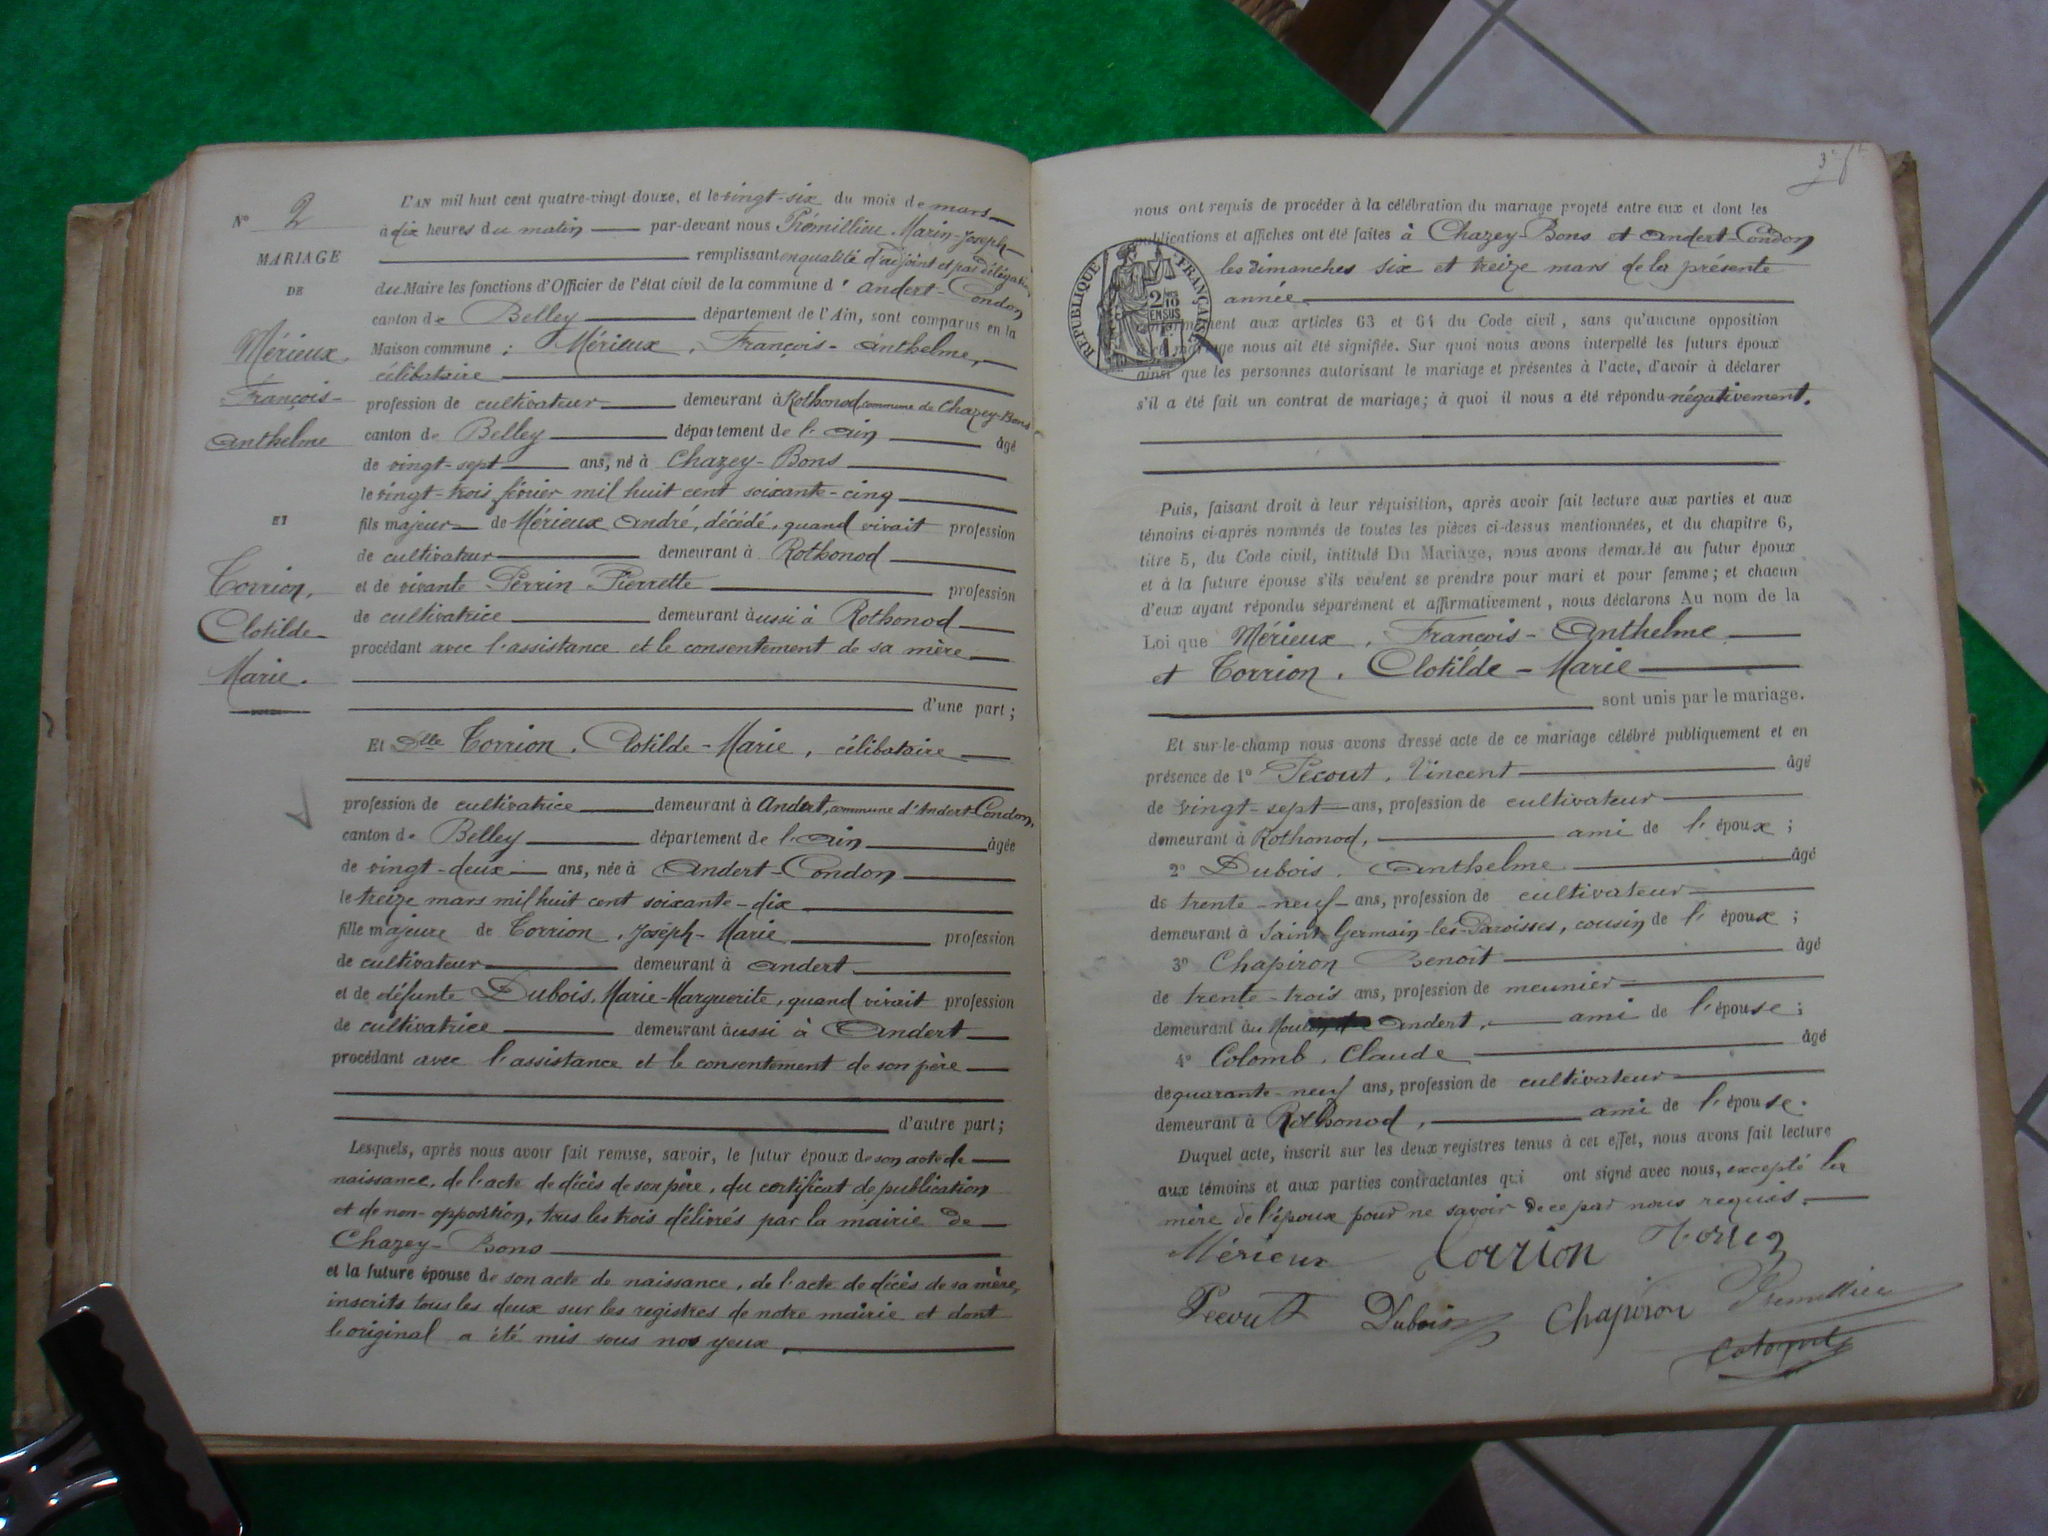 N° 2
MARIAGE
DE
Mérieux,
François-
Anthelme
ET
Torrion,
Clotilde-
Marie.
L'AN mil huit cent quatre-vingt douze, et le vingt-six du mois de mars
à dix heures du matin par-devant nous Prémillieu, Marin-Joseph
remplissant en qualité d'adjoint et par délégation
du Maire les fonctions d'Officier de l'état civil de la commune d' Andert-Condon
canton de Belley département de l'Ain, sont comparus en la
Maison commune : Mérieux, François-Anthelme,
célibataire
profession de cultivateur demeurant à Rothonod, commune de Chazey-Bons
canton de Belley département de l'Ain âgé
de vingt-sept ans, né à Chazey-Bons
le vingt-trois février mil huit cent soixante-cinq
fils majeur de Mérieux André, décédé, quand vivait profession
de cultivateur demeurant à Rothonod
et de vivante Perrin Pierrette profession
de cultivatrice demeurant aussi à Rothonod
procédant avec l'assistance et le consentement de sa mère
d'une part ;
Et Dlle Torrion, Clotilde-Marie, célibataire
profession de cultivatrice demeurant à Andert, commune d'Andert-Condon,
canton de Belley département de l'Ain âgée
de vingt-deux ans, née à Andert-Condon
le treize mars mil huit cent soixante-dix
fille majeure de Torrion, Joseph-Marie profession
de cultivateur demeurant à Andert
et de défunte Dubois, Marie-Marguerite, quand vivait profession
de cultivatrice demeurant aussi à Andert
procédant avec l'assistance et le consentement de son père
d'autre part ;
Lesquels, après nous avoir fait remise, savoir, le futur époux de son acte de
naissance, de l'acte de décès de son père, du certificat de publication
et de non-opposition, tous les trois délivrés par la mairie de
Chazey-Bons
et la future épouse de son acte de naissance, de l'acte de décès de sa mère,
inscrits tous les deux sur les registres de notre mairie et dont
l'original a été mis sous nos yeux,
nous ont requis de procéder à la célébration du mariage projeté entre eux et dont les
publications et affiches ont été faites à Chazey-Bons et Andert-Condon
les dimanches six et treize mars de la présente
année
RÉPUBLIQUE FRANÇAISE
2/10
EN SUS
1F
aux articles 63 et 64 du Code civil, sans qu'aucune opposition
mariage nous ait été signifiée. Sur quoi nous avons interpellé les futurs époux
ainsi que les personnes autorisant le mariage et présentes à l'acte, d'avoir à déclarer
s'il a été fait un contrat de mariage ; à quoi il nous a été répondu négativement.
Puis, faisant droit à leur réquisition, après avoir fait lecture aux parties et aux
témoins ci-après nommés de toutes les pièces ci-dessus mentionnées, et du chapitre 6,
titre 5, du Code civil, intitulé Du Mariage, nous avons demandé au futur époux
et à la future épouse s'ils veulent se prendre pour mari et pour femme ; et chacun
d'eux ayant répondu séparément et affirmativement, nous déclarons Au nom de la
Loi que Mérieux, François-Anthelme
et Torrion, Clotilde-Marie
sont unis par le mariage.
Et sur-le-champ nous avons dressé acte de ce mariage célébré publiquement et en
présence de 1° Pecout, Vincent âgé
de vingt-sept ans, profession de cultivateur
demeurant à Rothonod, ami de l'époux ;
2° Dubois, Anthelme âgé
de trente-neuf ans, profession de cultivateur
demeurant à Saint-Germain-les-Paroisses, cousin de l'époux ;
3° Chapiron Benoît âgé
de trente-trois ans, profession de meunier
demeurant à Andert, ami de l'épouse ;
4° Colomb, Claude âgé
de quarante-neuf ans, profession de cultivateur
demeurant à Rothonod, ami de l'épouse.
Duquel acte, inscrit sur les deux registres tenus à cet effet, nous avons fait lecture
aux témoins et aux parties contractantes qui ont signé avec nous, excepté la
mère de l'époux pour ne savoir de ce par nous requis.
Mérieux Torrion
Pecout Dubois Chapiron Prémillieu
Colomb